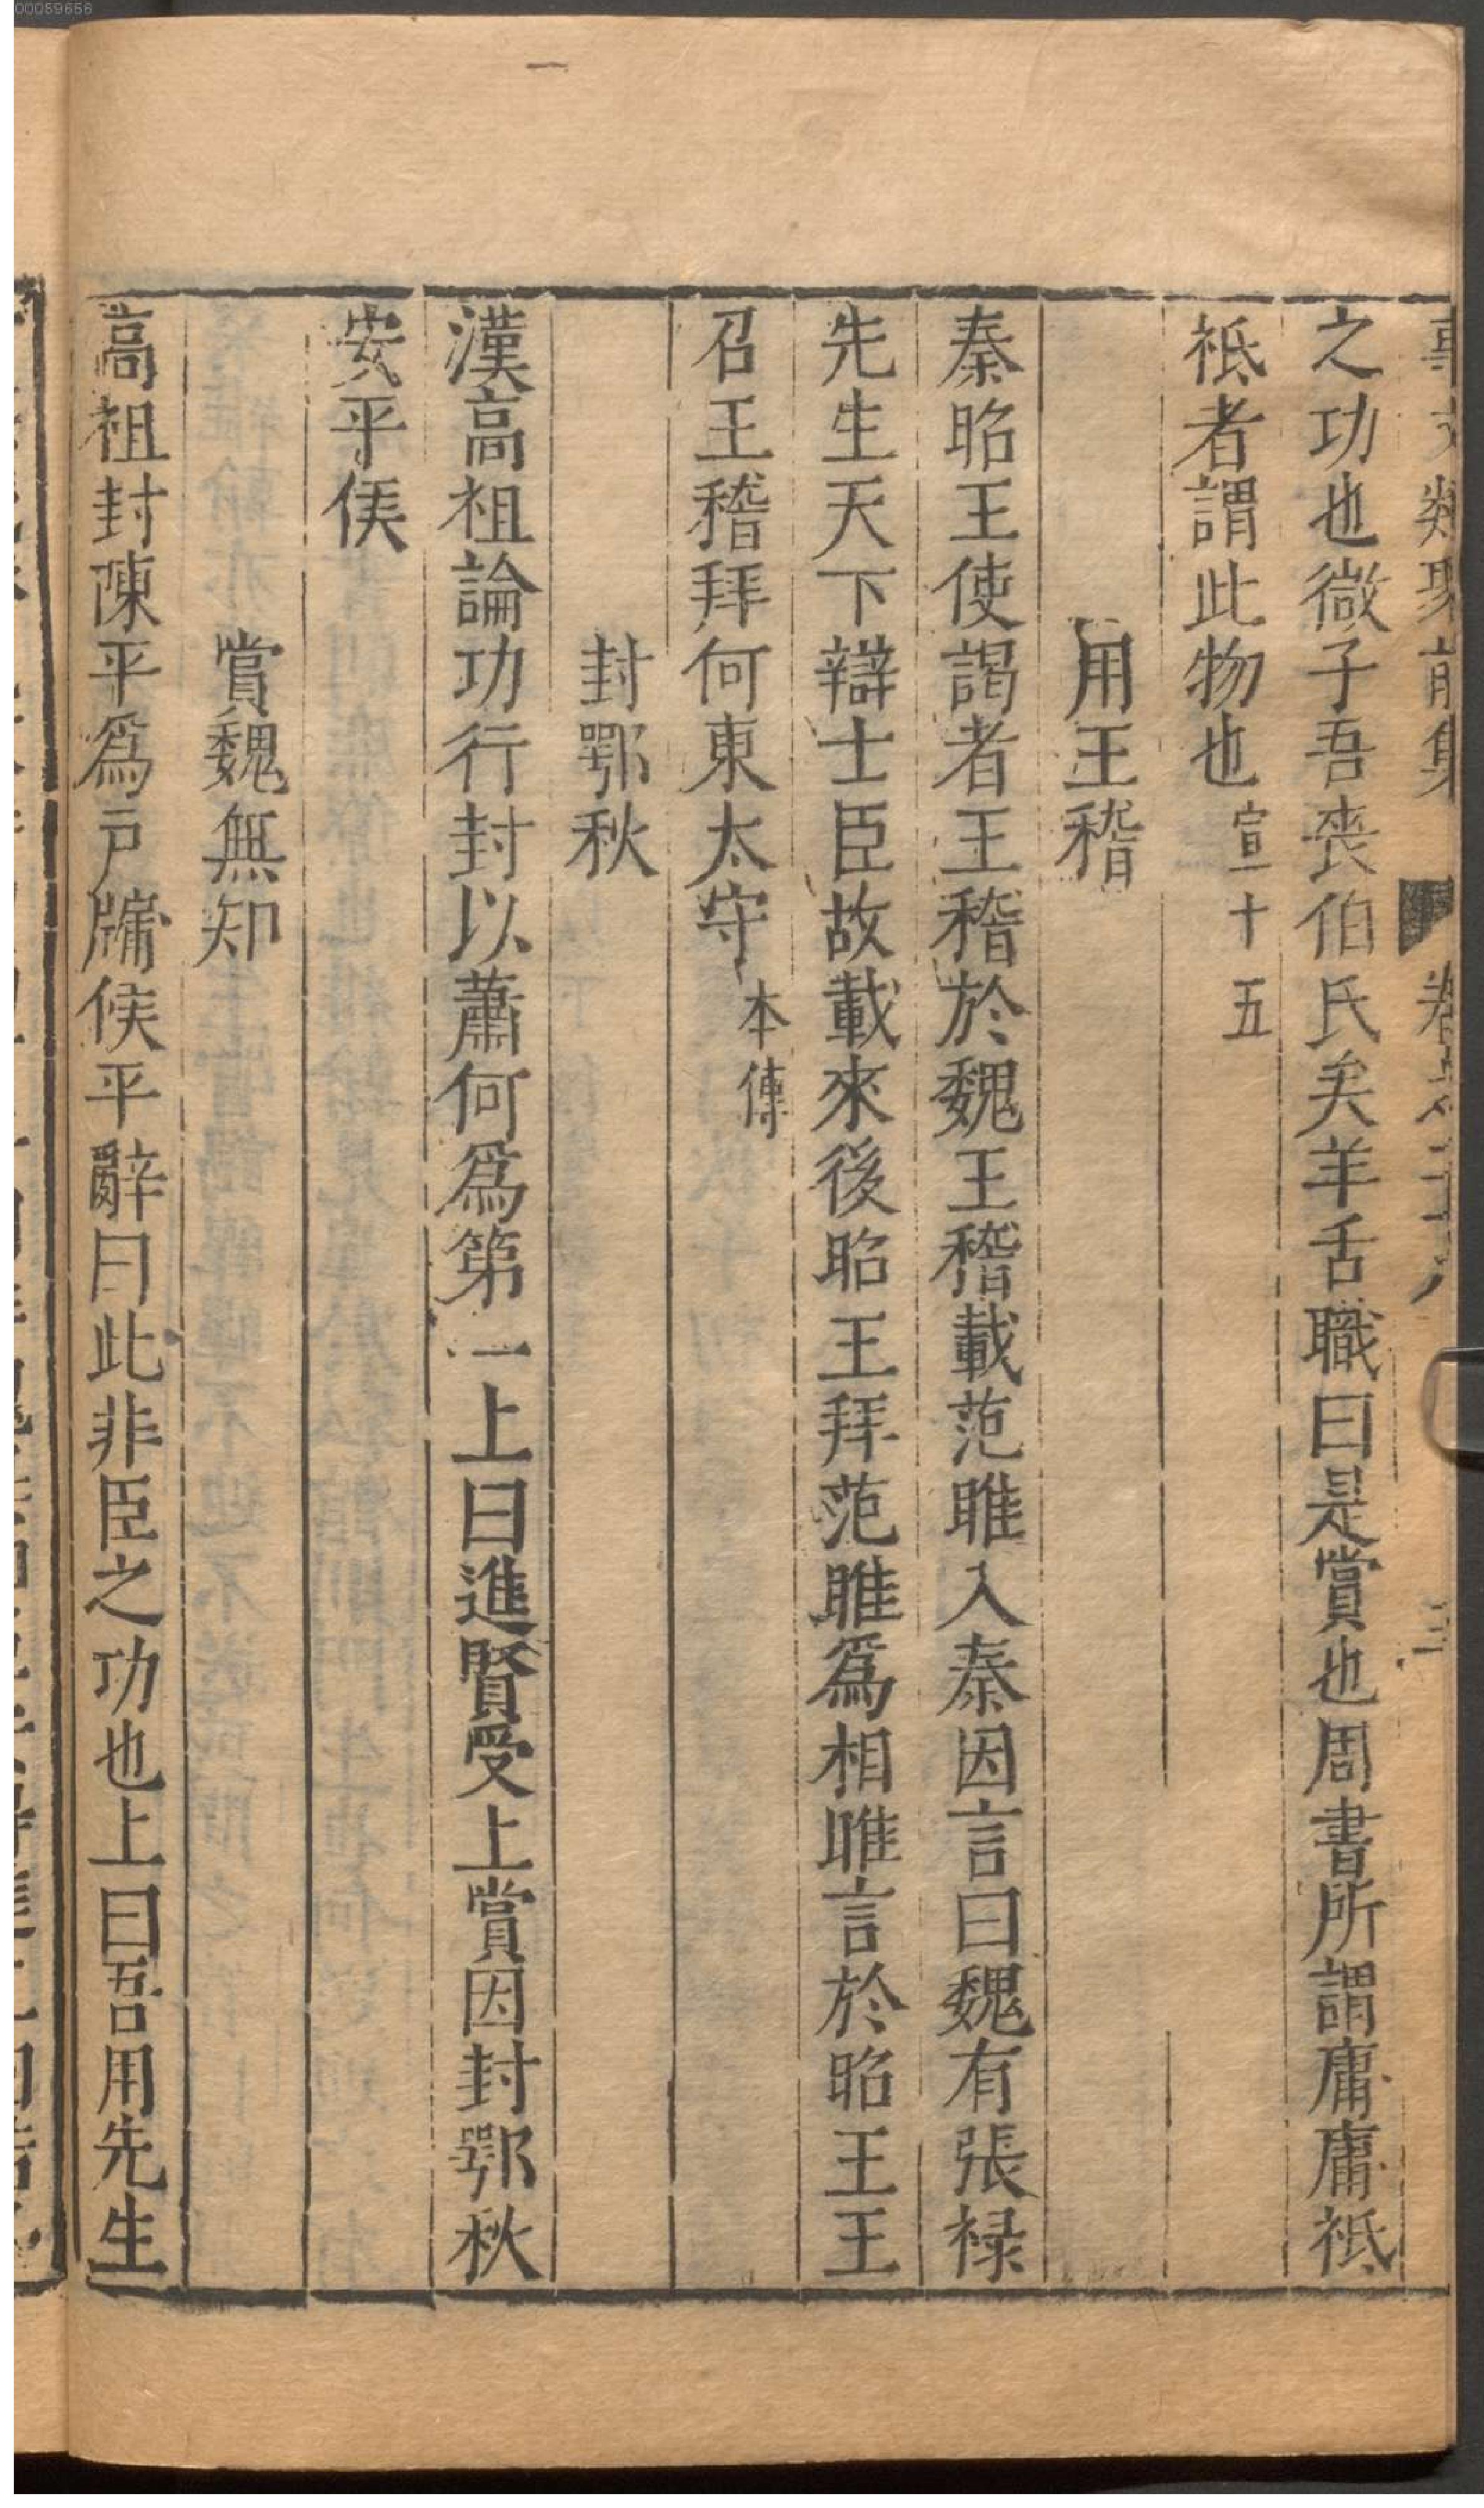 00059656
之功也微子吾喪伯氏矣羊舌職曰是賞也周書所謂庸庸祗
祗者謂此物也宣十五
用王稽
秦昭王使謁者王稽於魏王稽載范雎入秦因言曰魏有張祿
先生天下辯士臣故載來後昭王拜范雎爲相雎言於昭王王
召王稽拜何東太守本傳
封鄂秋
漢高祖論功行封以蕭何爲第一上曰進賢受上賞因封鄂秋
安平侯
賞魏無知
高祖封陳平爲戸牖侯平辭曰此非臣之功也上曰吾用先生